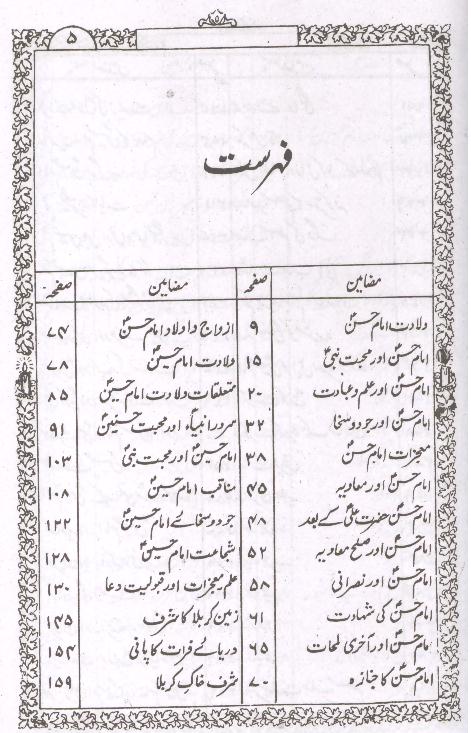 ۵
فہرست
مضامین صفحہ مضامین صفحہ
ولادت امام حسنؑ ۹ ازواج و اولاد امام حسنؑ ۷۴
امام حسنؑ اور محبت نبیؐ ۱۵ ولادت امام حسینؑ ۷۸
امام حسنؑ اور علم و عبادت ۲۰ متعلقات ولادت امام حسینؑ ۸۵
امام حسنؑ اور جود و سخا ۳۲ سردار انبیاءؐ اور محبت حسینؑ ۹۱
معجزات امام حسنؑ ۳۸ امام حسینؑ اور محبت نبیؐ ۱۰۳
امام حسنؑ اور معاویہ ۴۵ مناقب امام حسینؑ ۱۰۸
امام حسنؑ حضرت علیؑ کے بعد ۴۸ جود و سخائے امام حسینؑ ۱۲۲
امام حسنؑ اور صلح معاویہ ۵۲ شجاعت امام حسینؑ ۱۲۸
امام حسنؑ اور نصرانی ۵۸ علم معجزات اور قبولیت دعا ۱۳۰
امام حسنؑ کی شہادت ۶۱ زمین کربلا کا شرف ۱۴۵
امام حسنؑ اور آخری لمحات ۶۵ دریائے فرات کا پانی ۱۵۴
امام حسنؑ کا جنازہ ۷۰ شرف خاک کربلا ۱۵۹